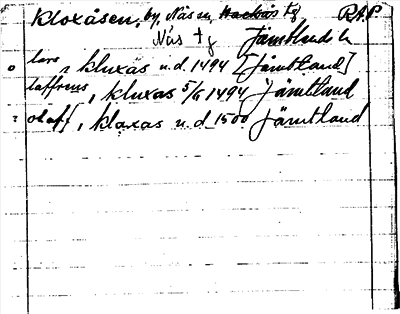 Kloxåsen, by, Näs sn, Hackås tg R.A.P
Näs tg Jämtlnd l
o lars, kluxås u.d. 1494 [Jämtland]
laffrens, kluxas 5/6 1494 Jämtland
: olaff, kloxas u.d. 1500 Jämtland